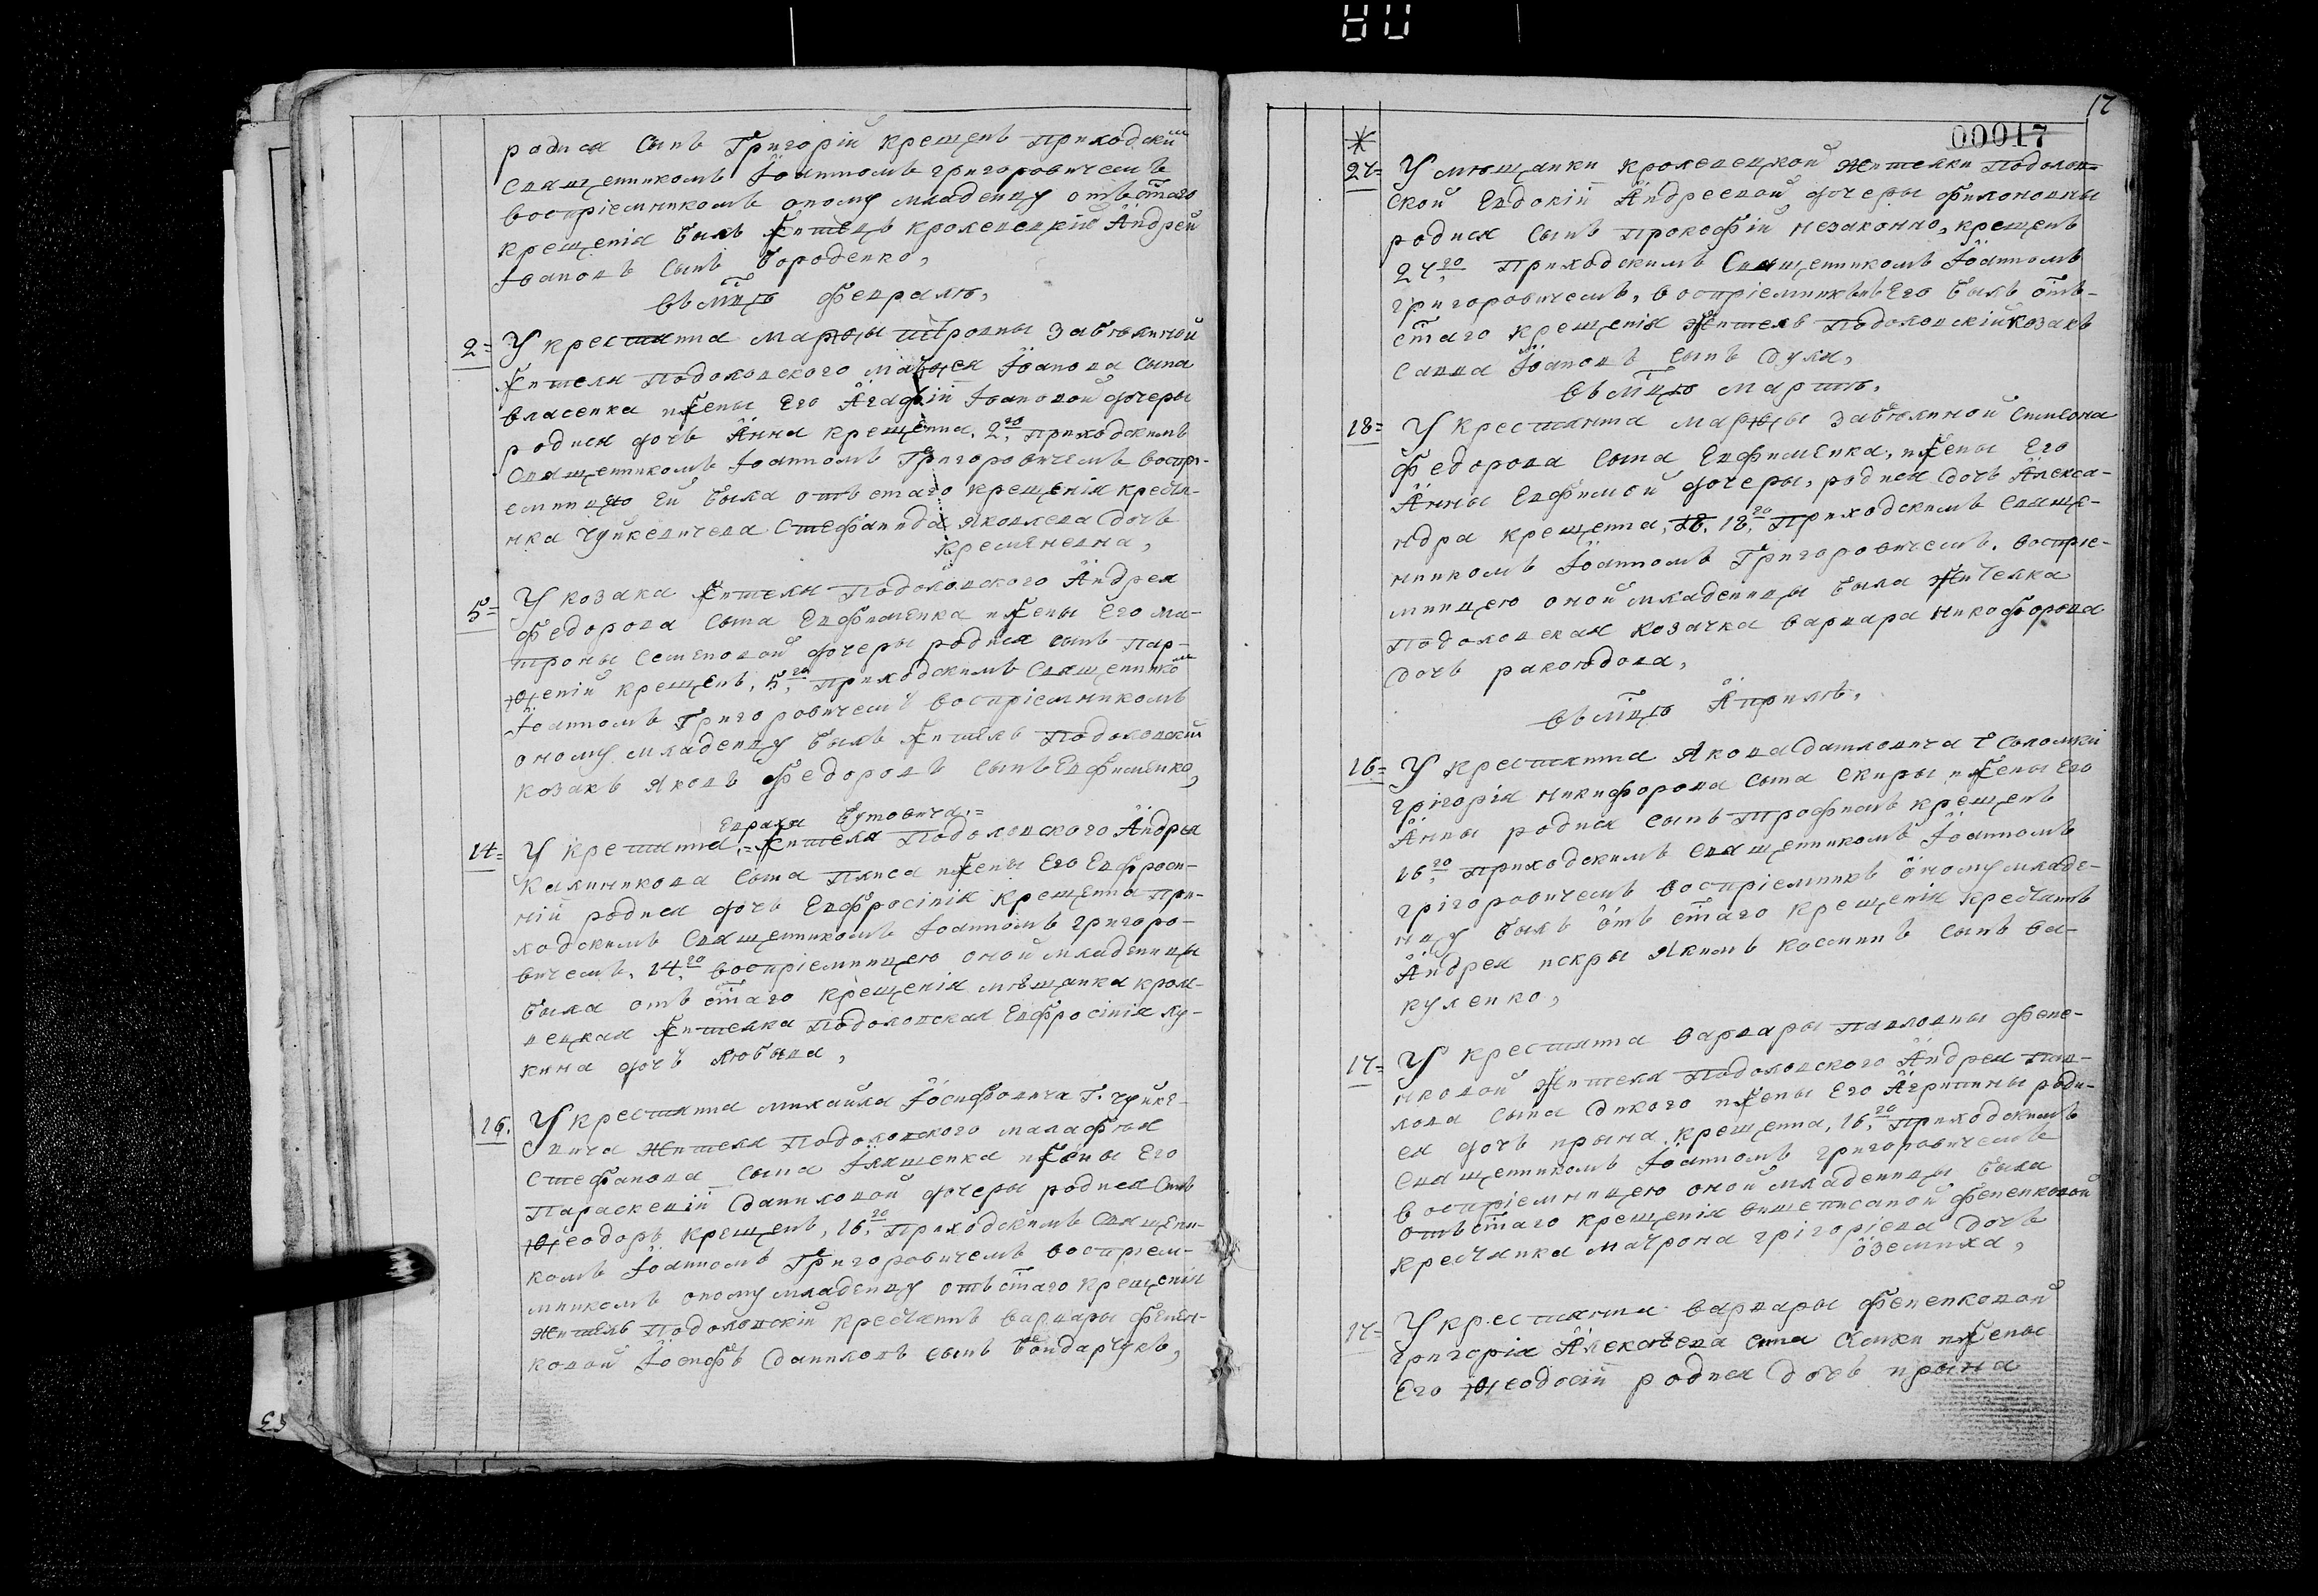 родися сынъ Григорій крещенъ приходским
священникомъ Іоанномъ григоровичемъ
воспріемникомъ оному младенцу отъ стаго
крещенія былъ житель кролевецкій Андрей
Іоановъ сынъ бороденко,
въ мцѣ февралѣ,
2= У крестянина марѳы петровны забѣлиной
жителя подоловского матѳея Іоанова сына
власенка и жены Его Агафіи Іоановой дочеры
родися дочь Анна крещенна, 2го приходскимъ
Священникомъ Іоанномъ Григоровичемъ воспрі-
емницею Ей была отъ стаго крещенія крестя-
нка чуйкевичева Стефанида яковлева дочь
кремяневна,
5= У козака жителя Подоловского Андрея
федорова сына Евфименка и жены Его ма-
троны Семеновой дочеры родися сынъ пар-
ѳеній крещенъ, 5го приходскимъ священником
Іоанномъ Григоровичемъ воспріемникомъ
оному младенцу былъ житель Подоловскій
козакъ яковъ федоровъ сынъ Евфименко,
Евраха бутовича =
14= У крестянина = жителя Подоловского Андрея
калиникова сына плиса и жены Его Евфроси-
ніи родися дочь Евфросінія крещенна при-
ходскимъ Священникомъ Іоанномъ григоро-
вичемъ, 14го воспріемницею оной младеницы
была отъ стаго крещенія мѣщанка крол-
вецкая жителка подоловская Евфросінія лу-
кина дочь любыва,
16. У крестянина михайла Іосифовича Г. чуйке-
вича жителя Подоловского малафѣя
Стефанова сына Іляшенка и жены Его
Параскевіи даниловой дочеры родися Сынъ
Ѳеодоръ крещенъ, 16го Приходскимъ Священи-
комъ Іоанномъ Григоровичемъ воспріем-
никомъ оному младенцу отъ стаго крещенія
житель Подоловскій крестянинъ варвары фенен-
ковой Іосифъ даниловъ сынъ бондарчукъ,
17
00017
*
24= У мѣщанки кролевецкой жителки Подолов-
ской Евдокіи Андреевой дочеры филоновны
родися сынъ прокофій незаконно, крещенъ
24го Приходскимъ Священникомъ Іоанномъ
григоровичемъ, воспріемникъ Его былъ отъ
стаго крещенія житель Подоловскій козакъ
савва Іоановъ сынъ дуля,
въ мцѣ мартѣ,
18= У крестянина марѳы забѣлиной Симеона
федорова сына Евфименка, и жены Его
Анны Евфимой дочеры, родися дочь Алекса-
ндра крещенна, 18, 18го Приходскимъ Свяще-
нникомъ Іоанномъ Григоровичемъ, воспріе-
мницею оной младеницы была жителка
Подоловская козачка варвара никофорова
дочь ракоѣдова,
въ мцѣ Априлѣ,
16= У крестянина Якова Дашловича
грігорія никифорова сына скиры и жены Его
Анны родися сынъ трофимъ крещенъ
16го приходскимъ священникомъ Іоанномъ
грігоровичемъ воспріемникъ оному младе-
нцу былъ отъ стаго крещенія крестянинъ
Андрея искры якимъ косминъ сынъ ва-
куленко,
17= У крестянина варвары павловны фене-
нковой жителя Подоловского Андрея пав-
лова сына дикого и жены Его Агрипины роди-
ся дочь ирына крещенна, 16го Приходскимъ
священникомъ Іоанномъ грігоровичемъ
воспріемницею оной младеницы была
отъ стаго крещенія вишеписаной фененковой
крестянка матрона грігоріева дочь
оземиха,
17= У крестянина варвары фененковой
григорія Алексѣева сина и жены
Его Ѳеодосіи родися дочь ирына